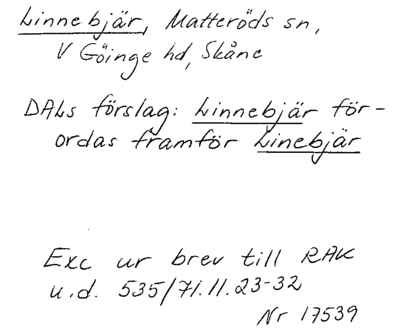 Linnebjär, Matteröds sn,
V Göinge hd, Skåne
DALs förslag: Linnebjär för-
ordas framför Linebjär
Exc ur brev till RAK
u.d. 535/71.11.23-32
Nr 17539